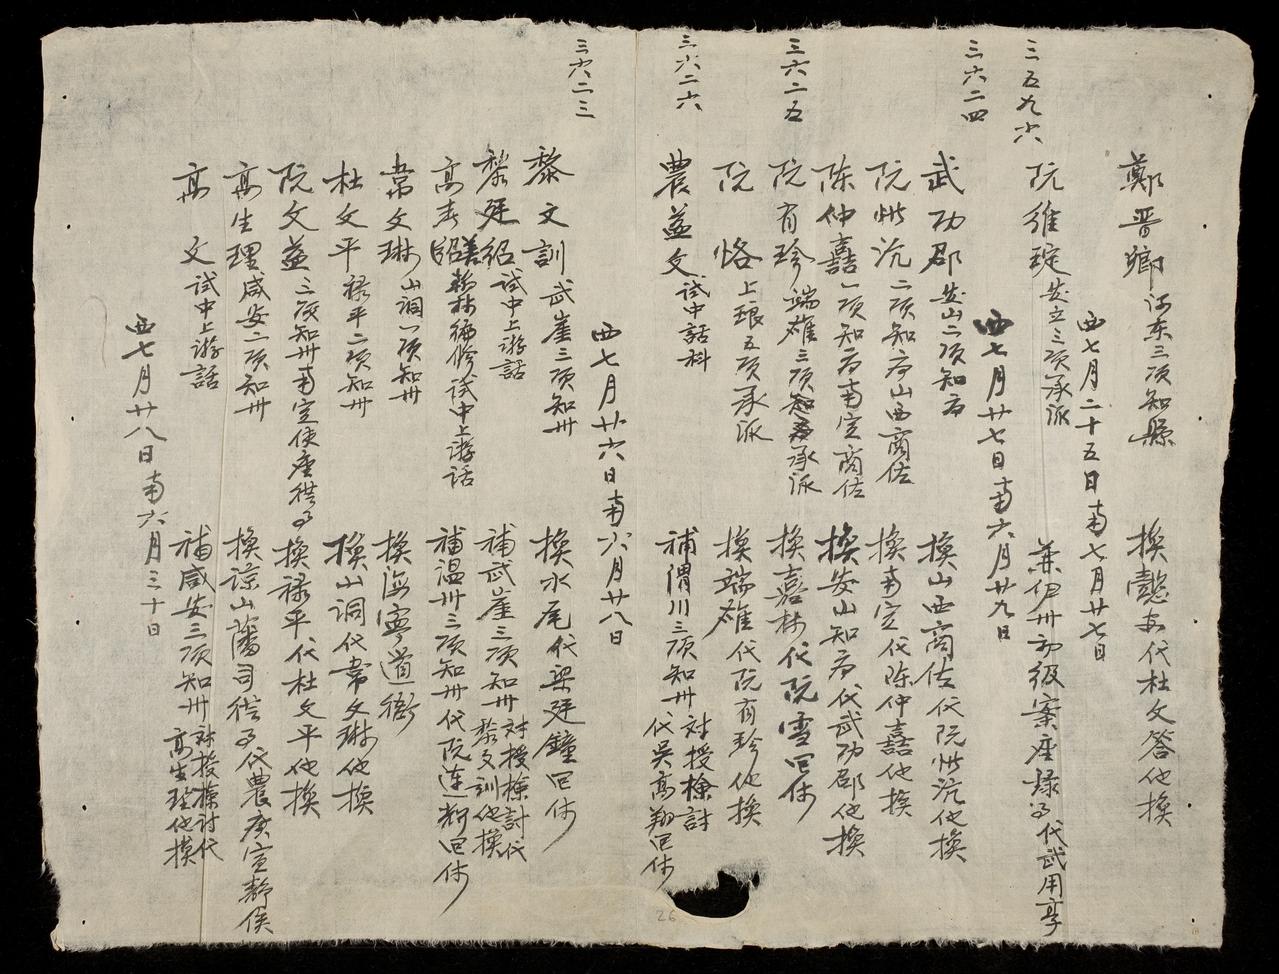 鄭晋卿 河东三项知縣 換懿安代杜文答他換
西七月二十五日南七月廿七日
三五九六
阮維琔 安立三项承派 兼伊卅初级案座錄事代武用享
西七月廿七日南六月廿九日
三六二四
武功郡 安山二项知府 換山西商佐代阮惟沆他換
阮惟沆 二项知府山西商佐 換南定代陈仲嘉他換
陈仲嘉 一项知府南定商佐 換安山知府代武功郡他換
三六二五
阮有珍 端雄三项承派 換嘉林代阮雪囬休
阮恪 上琅五项承派 換端雄代阮有珍他換
三六二六
農益文 試中話科 補渭川三项知卅対授檢討代吴高翔囬休
西七月廿六日南六月廿八日
三六二三
黎文訓 武崖三项知卅 換水尾代梁廷鐘囬休
黎廷紹 試中上游話 補武崖三项知卅対授檢討代黎文訓他換
高春 翰林编修試中上游話 補温卅三项知卅代阮连新囬休
常文琳 山洞一项知卅 換海寧道衙
杜文平 禄平二项知卅 換山洞代常文琳他換
阮文益 三项知卅南定使座供事 換禄平代杜文平他換
高生理 咸安二项知卅 換諒山藩司供事代農廣宣静侯
高文 試中上游話 補咸安三项知卅対授檢討代高生理他換
西七月廿八日南六月三十日
26